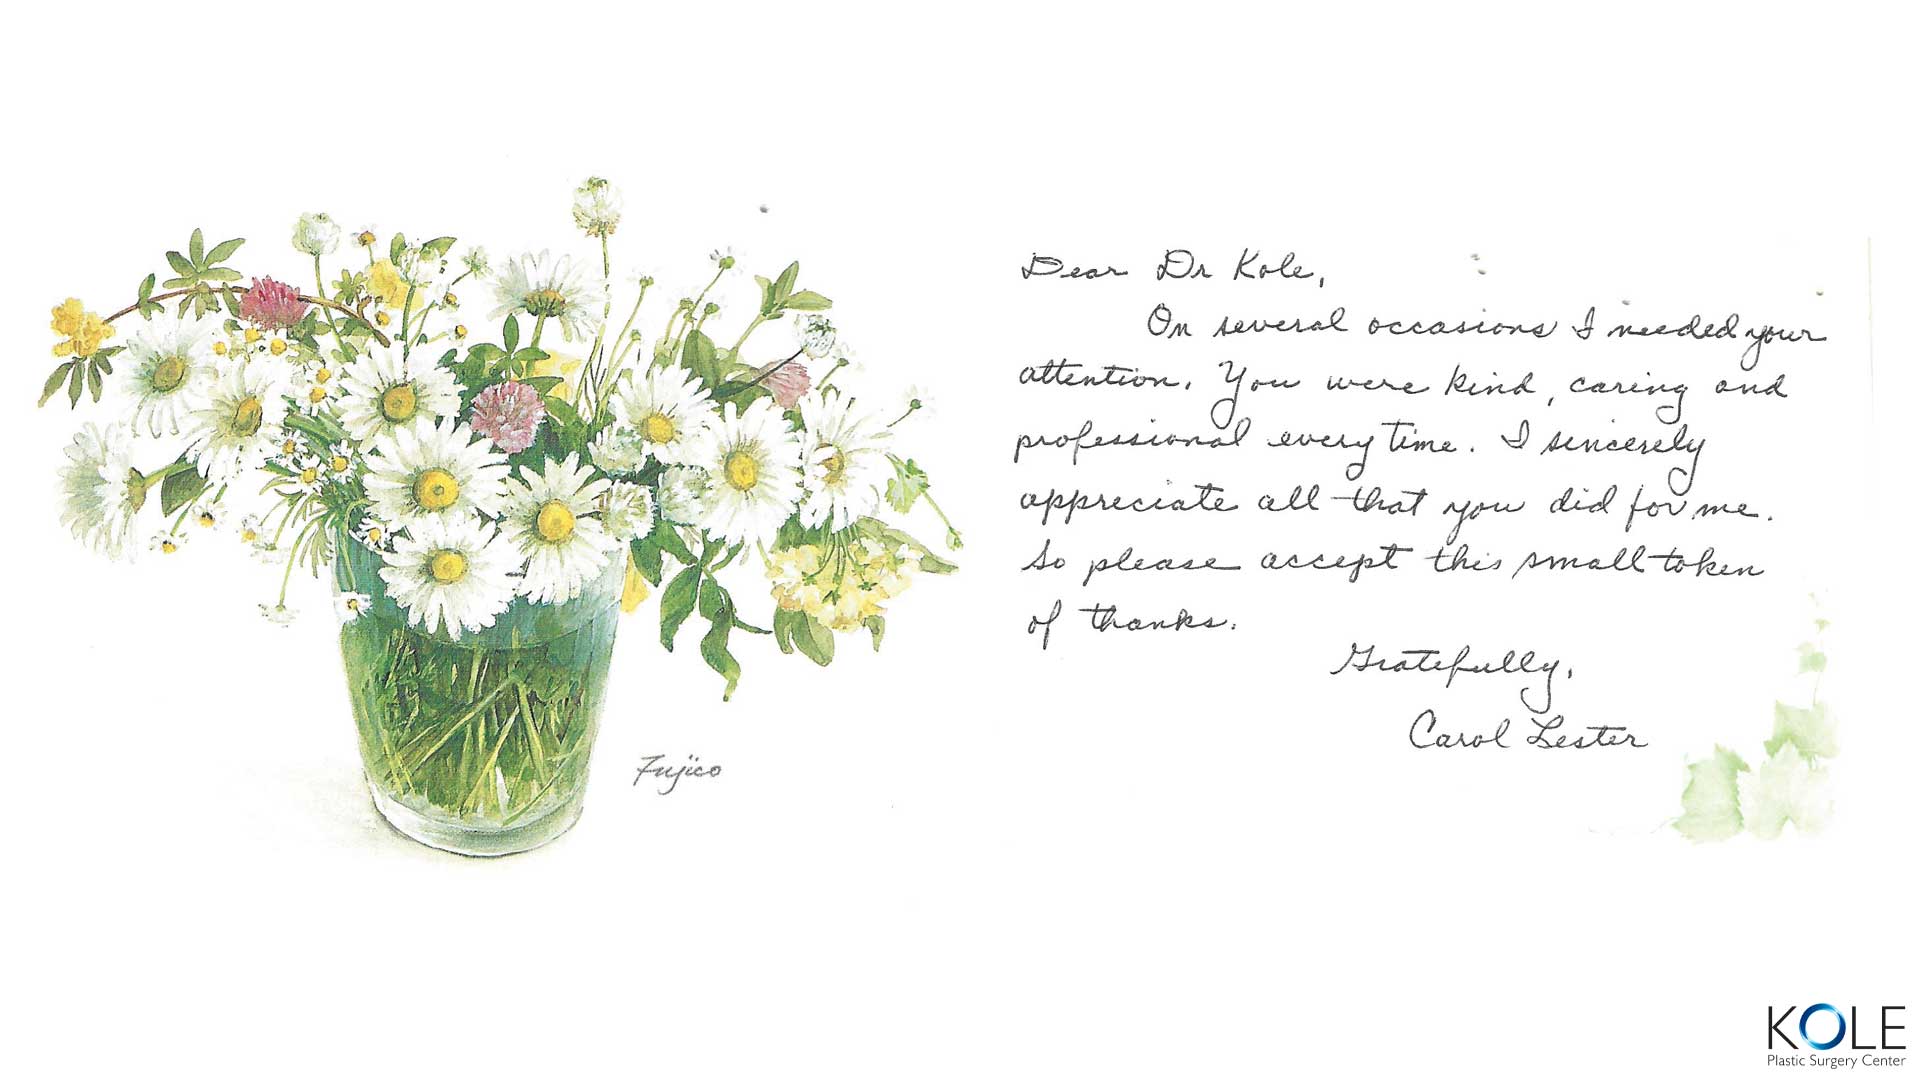 Dear Dr Kole,
On several occasions I needed your
attention. You were kind, caring and
professional every time. I sincerely
appreciate all that you did for me.
So please accept this small token
of thanks.
Gratefully,
Carol Lester
Fujico
KOLE
Plastic Surgery Center